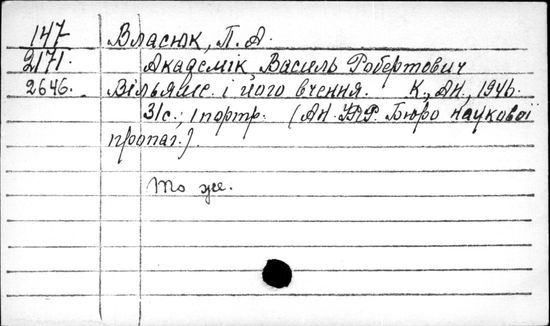 147 Власюк, П.А.
2171. Академік Василь Робертович
2646. Вільямс і його вчення. К., АН, 1946.
31с., 1 портр. (АН. УРСР. Бюро наукової
пропаг.).
То же.